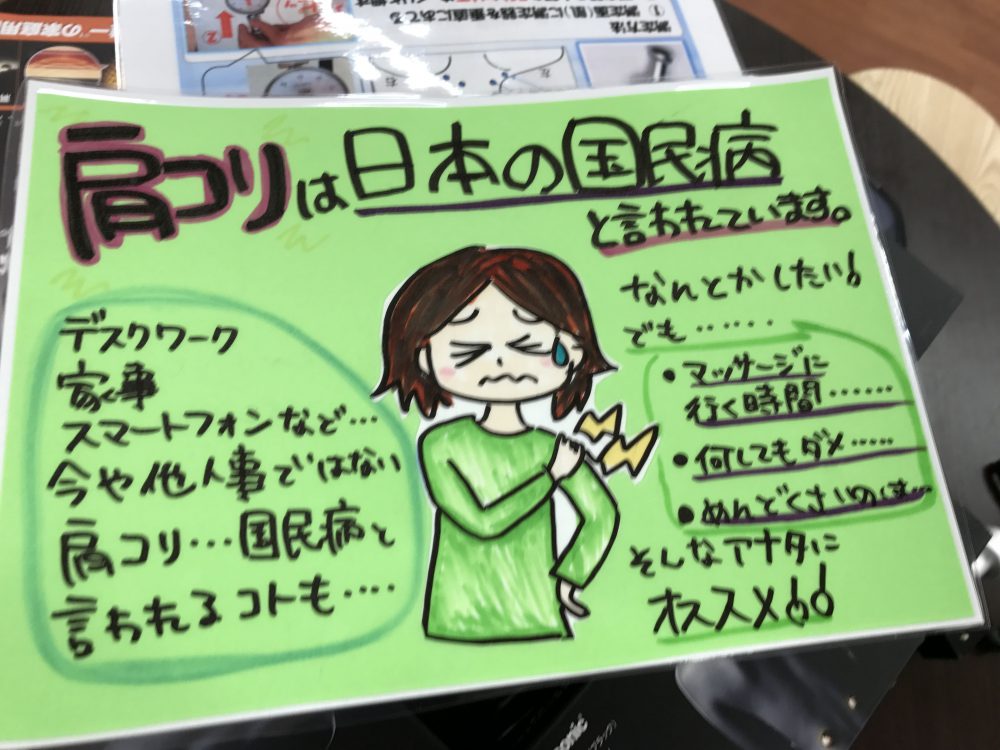 肩コリは日本の国民病
と言われています。
デスクワーク
家事
スマートフォンなど…
今や他人事ではない
肩コリ…国民病と
言われるコトも‥‥
なんとかしたい!
でも‥‥‥
・マッサージに
行く時間‥‥‥
・何してもダメ‥‥‥
・めんどくさいのは…
そんなアナタに
オススメ!!
測定方法
① 測定面(肌)に測定器を垂直にあてる
の家庭用